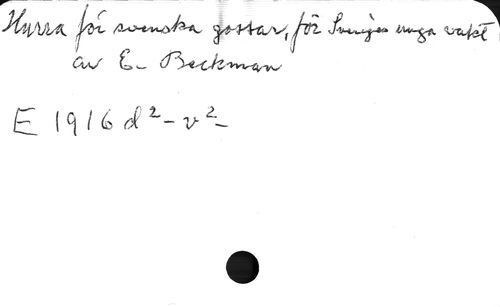 Hurra för svenska gossar, för Sveriges unga vakt
av E. Beckman
E 1916 d² - v² -